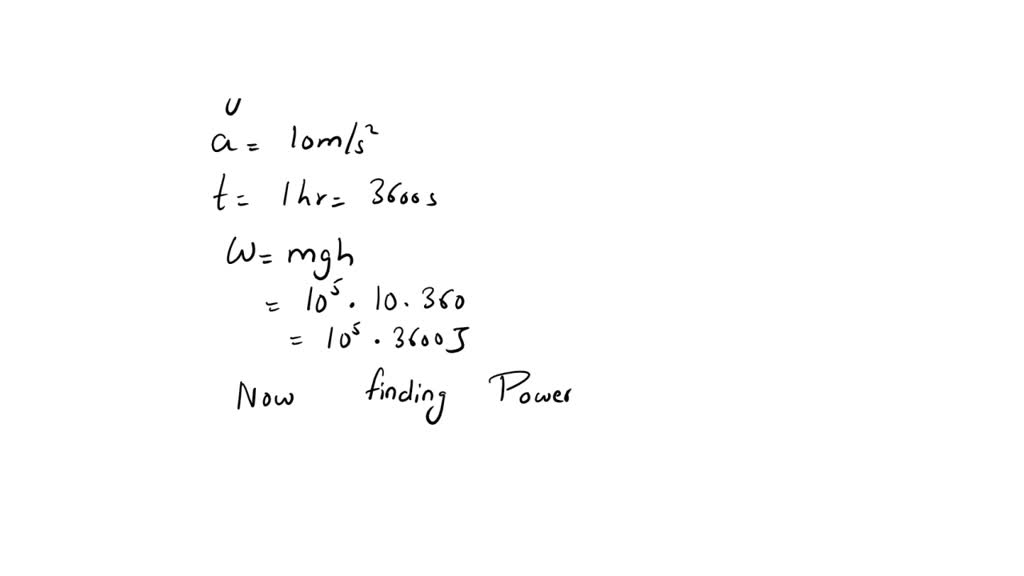 υ
a = 10m/s²
t = 1hr = 3600s
W = mgh
= 10⁵ . 10 . 360
= 10⁵ . 3600J
Now finding Power